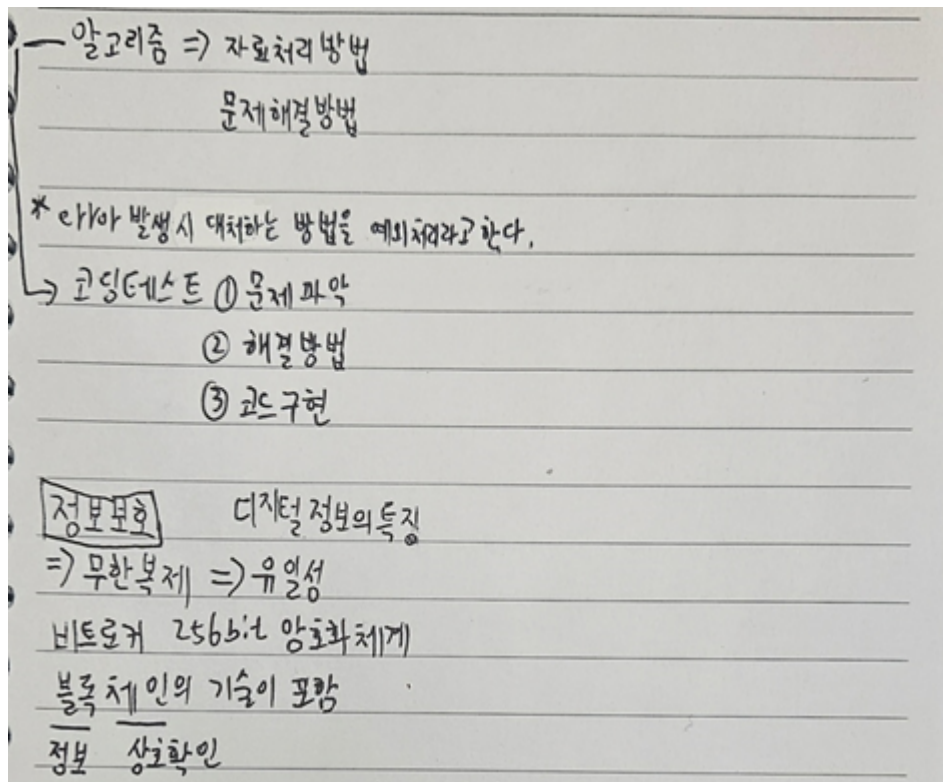 알고리즘 => 자료처리방법
문제해결방법
* 발생시 대처하는 방법을 예외처리라고 한다.
코딩테스트 ① 문제파악
② 해결방법
③ 코드구현
정보보호 디지털 정보의 특징
=> 무한복제 => 유일성
비트로커 256bit 암호화체계
블록체인의 기술이 포함
정보 상호확인